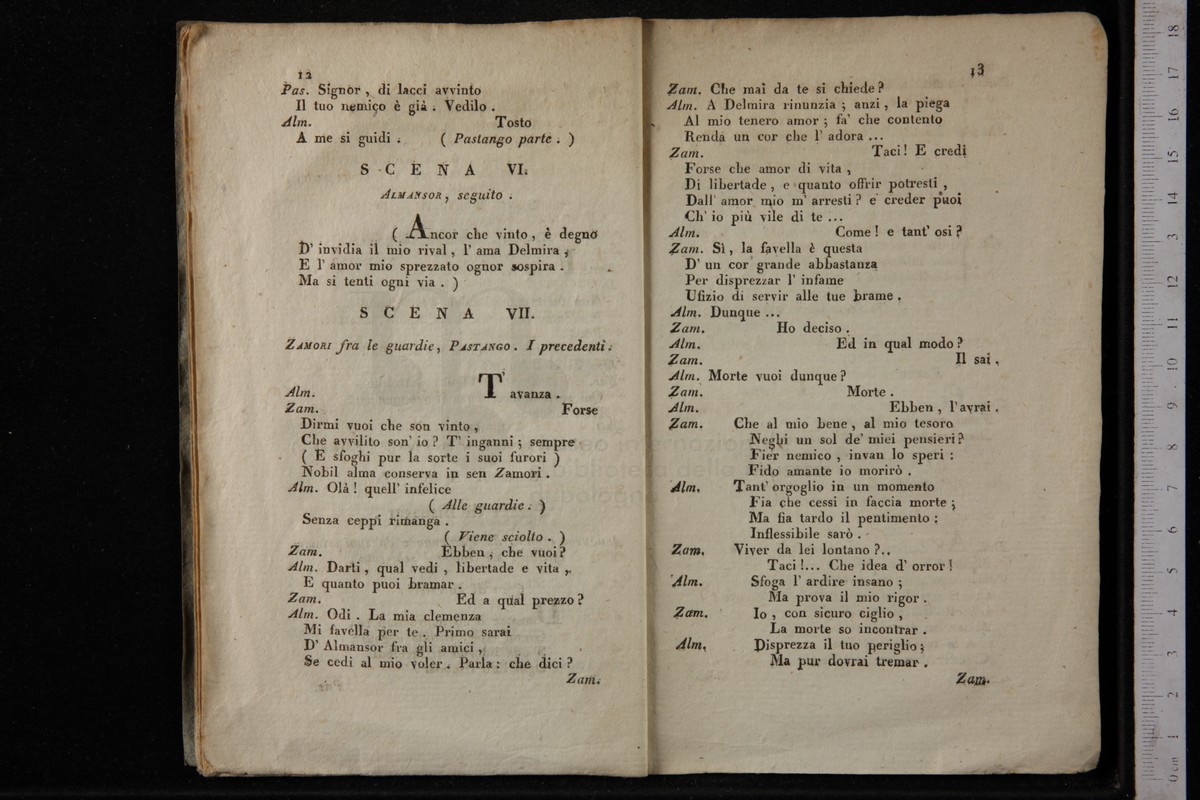 12
Pas. Signor, di lacci avvinto
Il tuo nemico è già. Vedilo.
Alm. Tosto
A me si guidi. (Pastango parte.)
SCENA VI.
ALMANSOR, seguito.
(Ancor che vinto, è degno
D' invidia il mio rival, l' ama Delmira,
E l' amor mio sprezzato ognor sospira.
Ma si tenti ogni via.)
SCENA VII.
ZAMORI fra le guardie, PASTANGO. I precedenti.
Alm. T' avanza.
Zam. Forse
Dirmi vuoi che son vinto,
Che avvilito son' io? T' inganni; sempre
(E sfoghi pur la sorte i suoi furori)
Nobil alma conserva in sen Zamori.
Alm. Olà! quell' infelice
(Alle guardie.)
Senza ceppi rimanga.
(Viene sciolto.)
Zam. Ebben, che vuoi?
Alm. Darti, qual vedi, libertade e vita,
E quanto puoi bramar.
Zam. Ed a qual prezzo?
Alm. Odi. La mia clemenza
Mi favella per te. Primo sarai
D' Almansor fra gli amici,
Se cedi al mio voler. Parla: che dici?
Zam.
13
Zam. Che mai da te si chiede?
Alm. A Delmira rinunzia; anzi, la piega
Al mio tenero amor; fa' che contento
Renda un cor che l' adora...
Zam. Taci! E credi
Forse che amor di vita,
Di libertade, e quanto offrir potresti,
Dall' amor mio m' arresti? e creder puoi
Ch' io più vile di te...
Alm. Come! e tant' osi?
Zam. Sì, la favella è questa
D' un cor grande abbastanza
Per disprezzar l' infame
Ufizio di servir alle tue brame.
Alm. Dunque...
Zam. Ho deciso.
Alm. Ed in qual modo?
Zam. Il sai.
Alm. Morte vuoi dunque?
Zam. Morte.
Alm. Ebben, l'avrai.
Zam. Che al mio bene, al mio tesoro
Neghi un sol de' miei pensieri?
Fier nemico, invan lo speri:
Fido amante io morirò.
Alm. Tant' orgoglio in un momento
Fia che cessi in faccia morte;
Ma fia tardo il pentimento:
Inflessibile sarò.
Zam. Viver da lei lontano?..
Taci!... Che idea d' orror!
Alm. Sfoga l' ardire insano;
Ma prova il mio rigor.
Zam. Io, con sicuro ciglio,
La morte so incontrar.
Alm. Disprezza il tuo periglio;
Ma pur dovrai tremar.
Zam.